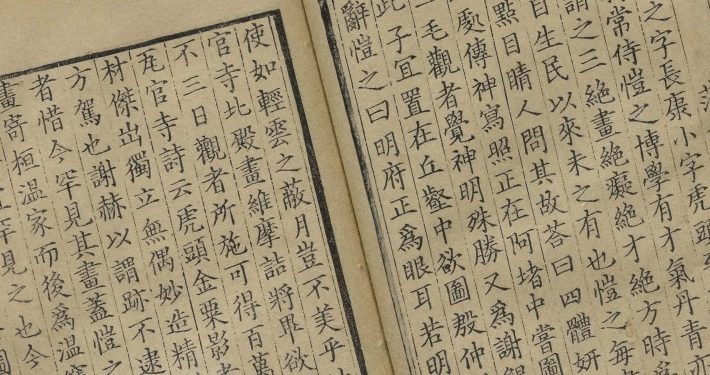 之字長康小字虎頭
常侍愷之博學有才氣丹青亦
謂之三絕畫絕癡絕才絕方時爲
自生民以來未之有也愷之每
點目睛人問其故荅曰四體妍
處傳神寫照正在阿堵中嘗圖
毛觀者覺神明殊勝又爲謝鯤
此子宜置在丘壑中欲圖殷仲
辭愷之曰明府正爲眼耳若明
使如輕雲之蔽月豈不美乎
官寺北殿畫維摩詰將畢欲
不三日觀者所施可得百萬
瓦官寺詩云虎頭金粟影
材傑出獨立無偶妙造精
方駕也謝赫以謂跡不逮
者惜今罕見其畫蓋愷之
畫寄桓溫家而後爲溫
罕見之也今
圖